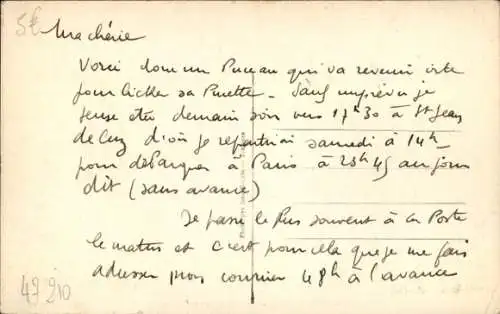 5€
Ma chérie
Voici donc un Puceau qui va revenir vite
pour licher sa Pucette - Sauf imprévu je
pense être demain soir vers 17h30 à St Jean
de Luz d'où je repartirai samedi à 14h
pour débarquer à Paris à 23h45 au jour
dit (sans avance)
Je passe le plus souvent à la Poste
le matin et c'est pour cela que je me fais
adresser mon courrier 48h à l'avance
49210